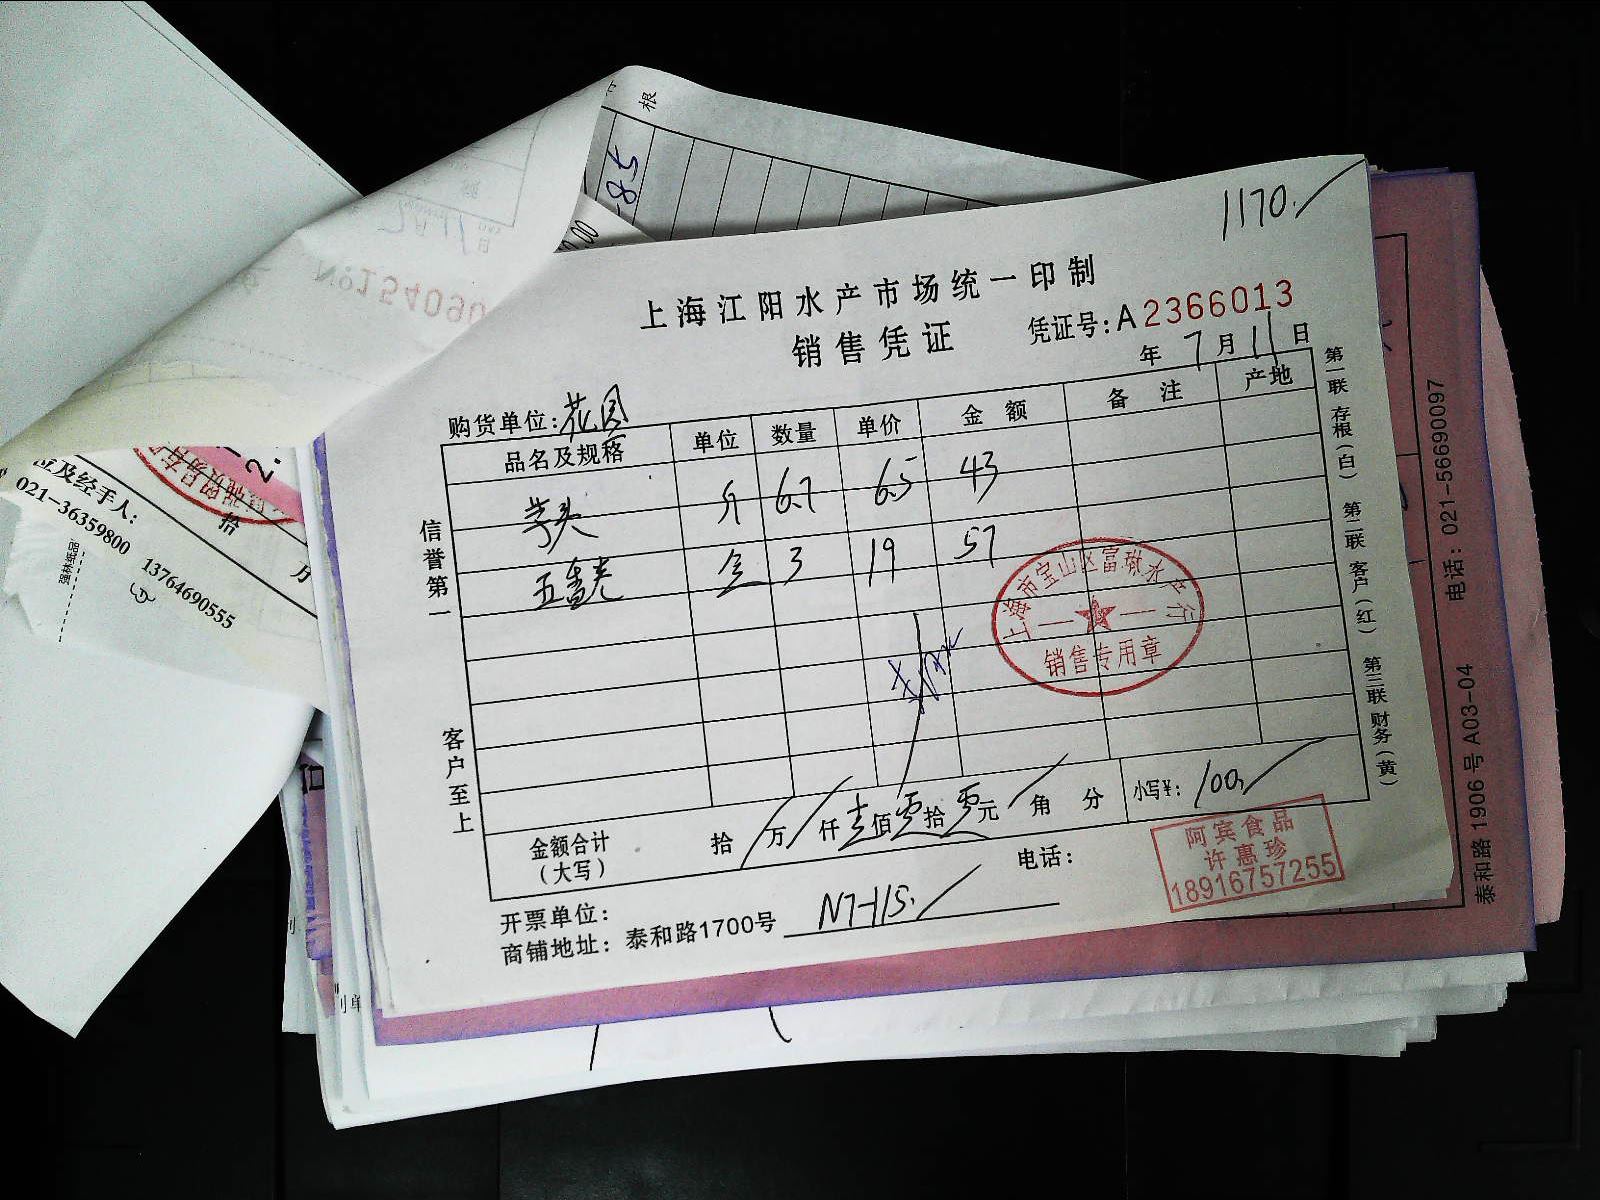 1170.
上海江阳水产市场统一印制
销售凭证
凭证号:A2366013
年 7月11日
购货单位:花园
品名及规格 单位 数量 单价 金额 备注 产地
芋头 斤 6.7 6.5 43
3 19 57
上海市宝山区富墩水产行
销售专用章
金额合计(大写) 拾 万 仟 壹佰 零拾 零元 角 分 小写¥: 100.
开票单位: 电话:
商铺地址: 泰和路1700号 N7-115.
阿宾食品
许惠珍
18916757255
信誉第一
客户至上
第一联 存根(白) 第二联 客户(红) 第三联 财务(黄)
泰和路1906号A03-04 电话: 021-56690097
根
58
№154090
位及经手人:
021-36359800 13764690555
拾
万
强林纸品